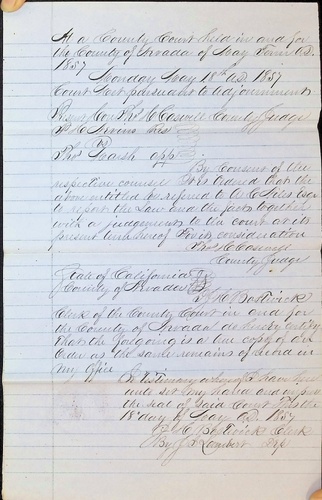 At a County Court held in and for
the County of Nevada of May Term A.D.
1857
Monday May 18th A.D. 1857
Court met pursuant to adjournment
Present Hon Thos H Caswell County Judge
vs
Chas Marsh appt
By Consent of the
respective counsel It is Ordered that the
above entitled be referred to
to report the Law and the facts together
with a judgement to this court at its
present term hereof for its consideration
Thos H Caswell
County Judge
State of California
County of Nevada SS
I Bostwick
Clerk of the County Court in and for
the County of Nevada do hereby certify
that the foregoing is a true copy of an
Order as the same remains of record in
my office
In testimony whereof I have here
unto set my hand and impress
the seal of said Court this the
18th day of May A.D. 1857
Bostwick Clerk
By J Lambert Dep